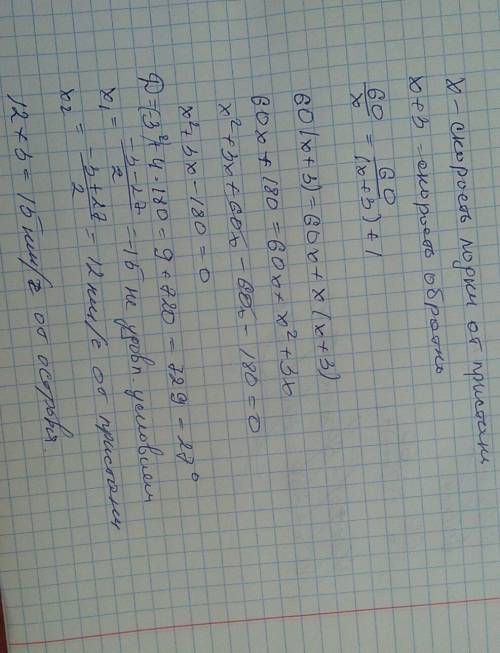 x – скорость лодки от пристани
x+3 – скорость обратно
60/x = 60/(x+3) + 1
60(x+3)=60x+x(x+3)
60x+180=60x+x²+3x
x²+3x+60x-60x-180=0
x²+3x-180=0
D=(3)²+4·180=9+720=729=27²
x₁ = (-3-27)/2 = -15 не удовл. условием
x₂ = (-3+27)/2 = 12 км/г от пристани
12+3=15 км/г от острова